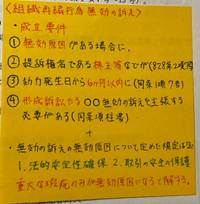 〈組織再編行為無効の訴え〉
・成立要件
① 無効原因がある場合に、
② 提訴権者である株主等などが(828条2項
③ 効力発生日から6ヶ月以内に(同条1項7号)
④ 形成訴訟たる〇〇無効の訴えを主張する
必要がある(同条項柱書)
+
・無効の訴えの無効原因について定めた規定は
1. 法的安定性確保 2. 取引の安全の保護
重大な瑕疵のみが無効原因になると解する。